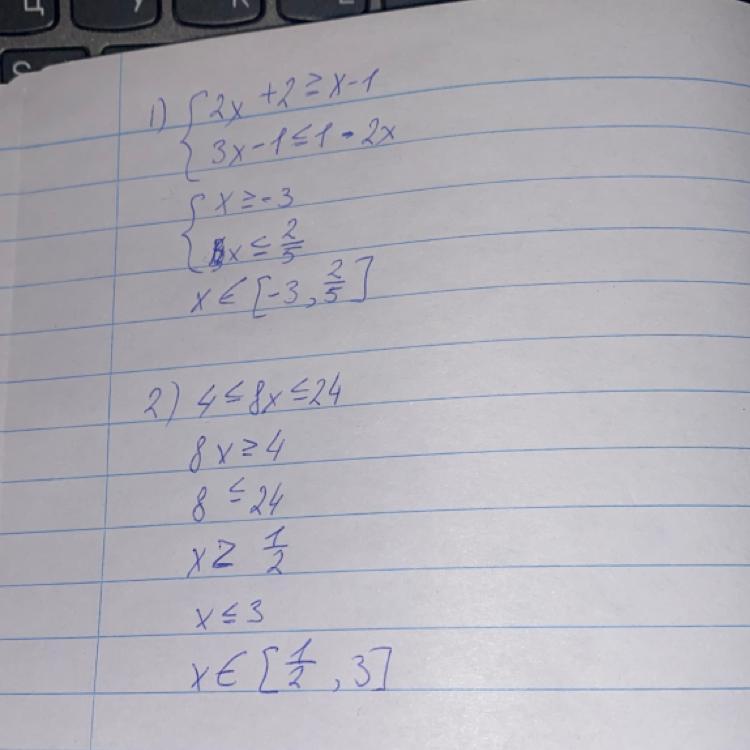 1) { 2x + 2 ≥ x - 1
3x - 1 ≤ 1 - 2x
{ x ≥ -3
x ≤ 2/5
x ∈ [-3, 2/5]
2) 4 ≤ 8x ≤ 24
8x ≥ 4
8 ≤ 24
x ≥ 1/2
x ≤ 3
x ∈ [1/2, 3]